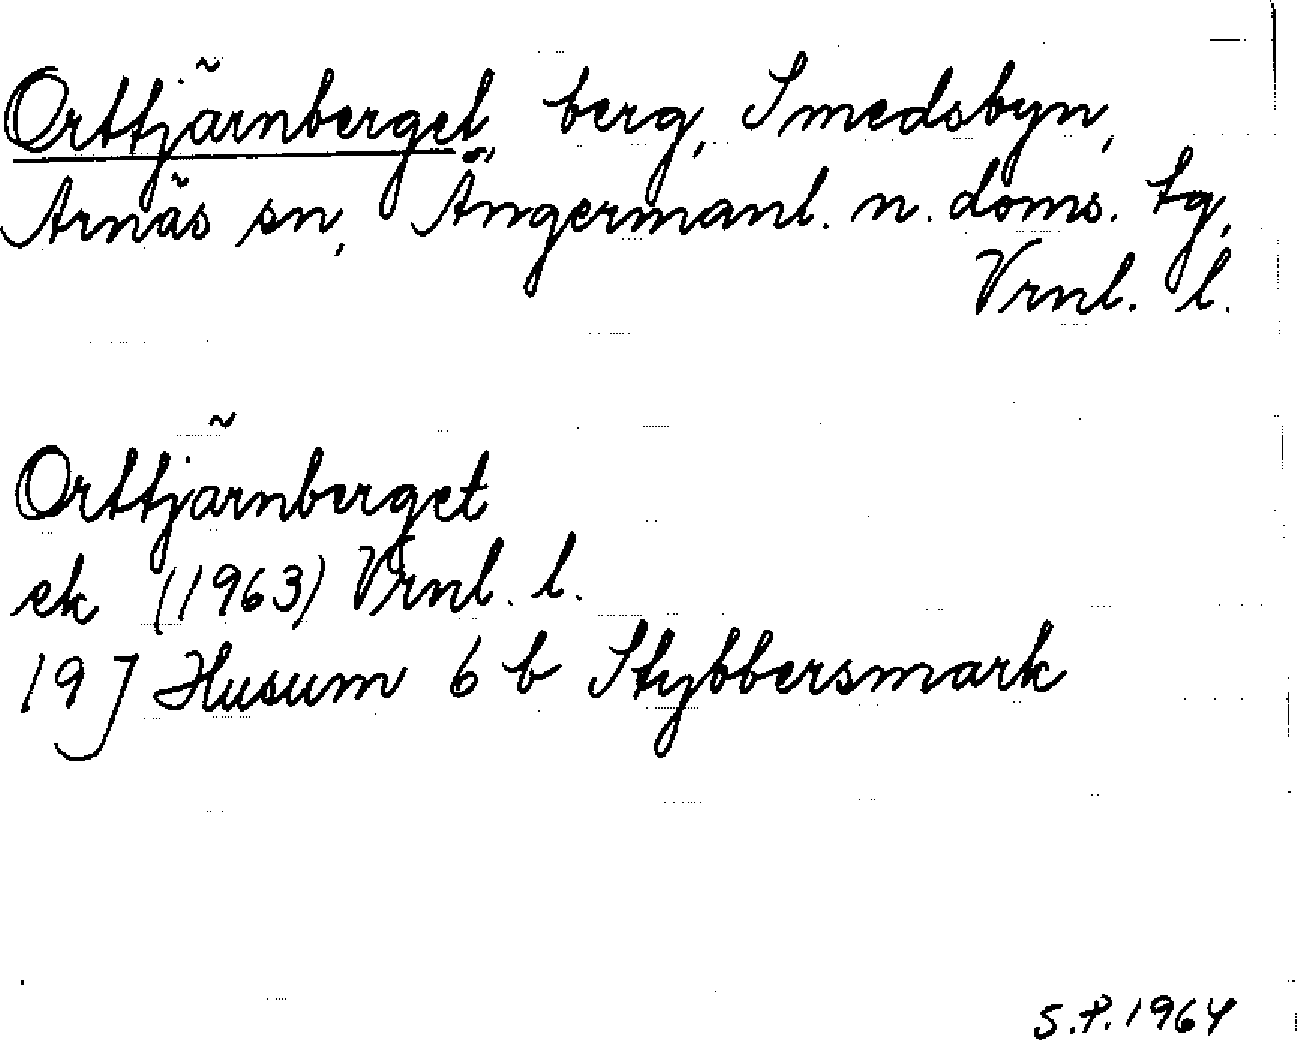 Orttjärnberget, berg, Smedsbyn,
Arnäs sn, Ångermanl. n. doms. tg,
Vrnl. l.
Orttjärnberget
ek (1963) Vrnl. l.
19 J Husum 6 b Stybbersmark
S.P. 1964